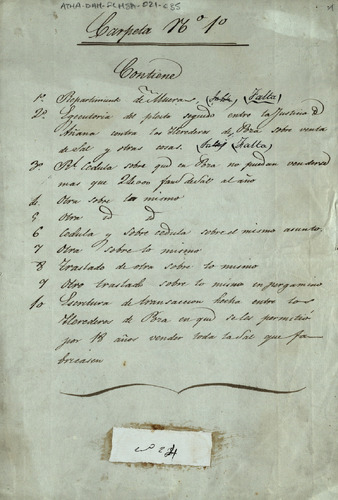 ATHA-DAH-FCHSA-021-C85
Carpeta Nº 1º
Contiene
1º Repartimto de Mueras, (Falta)
2º Egecutoria del pleito seguido entre la Justicia de
Añana contra los Herederos de Poza sobre venta
de Sal y otras cosas. (Falta)
3º Rl cedula sobre qe en Poza no puedan venderse
mas que 24000 fans de Sal al año
4 Otra sobre lo mismo
5 Otra id id
6 Cedula y sobre cedula sobre el mismo asunto
7 Otra sobre lo mismo
8 Traslado de otra sobre lo mismo
9 Otro traslado sobre lo mismo en pergamino
10 Escritura de transaccion hecha entre los
Herederos de Poza en qe se les permitió
por 18 años vender toda la Sal que fa-
bricasen
nº 24